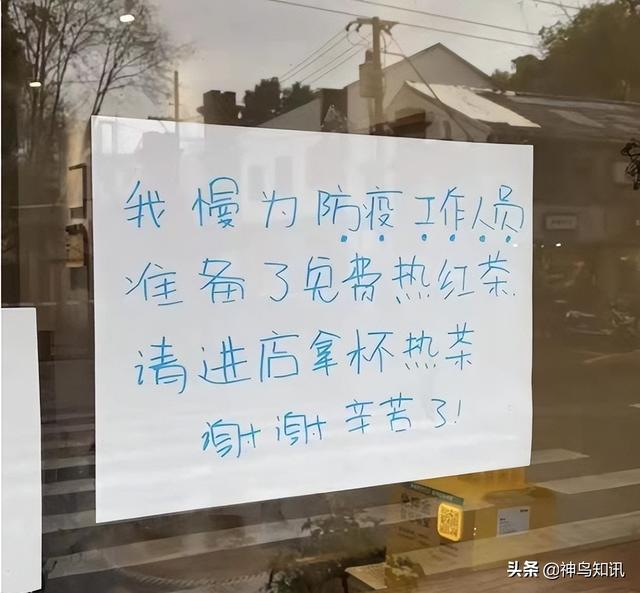 我慢为防疫工作人员
准备了免费热红茶.
请进店拿杯热茶
谢谢辛苦了!
头条 @神鸟知讯